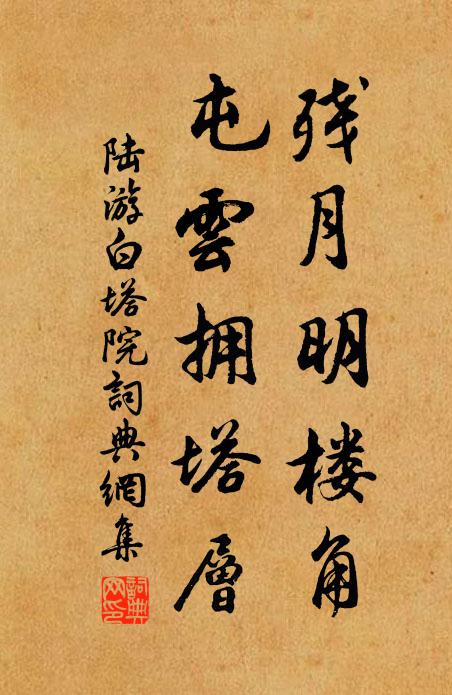 残月明楼角
屯雲拥塔層
陆游白塔院詞典網集
詞典网印